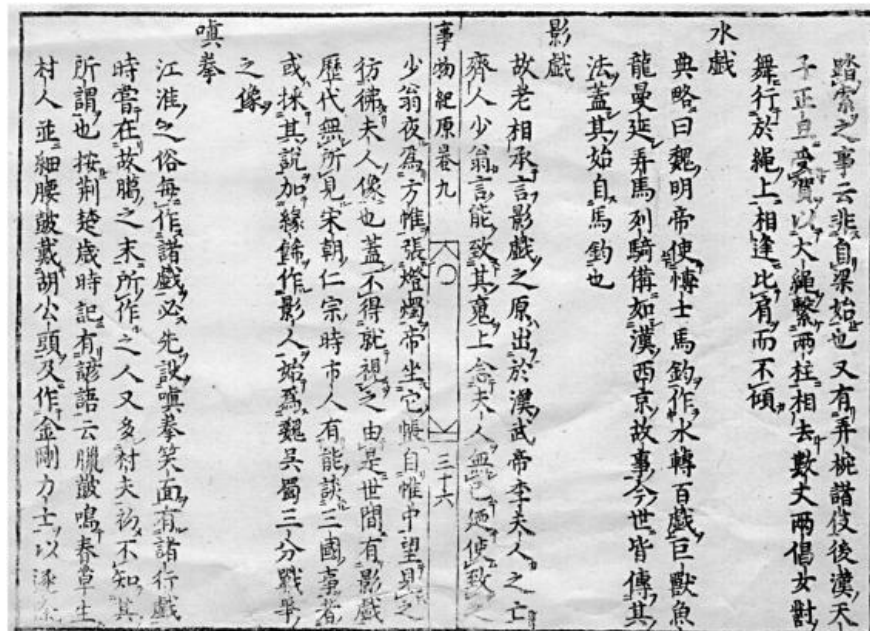 踏索之事云非自梁始也又有弄椀諸伎後漢天
子正旦受賀以大繩繫兩柱相去數丈兩倡女對
舞行於繩上相逢比肩而不傾
水戲
典略曰魏明帝使愽士馬鈞作水轉百戲巨獸魚
龍曼延弄馬列騎備如漢西京故事今世皆傳其
法蓋其始自馬鈞也
影戲
故老相承言影戲之原出於漢武帝李夫人之亡
齊人少翁言能致其䰟上念夫人無已廼使致之
事物紀原卷九 三十六
少翁夜爲方帷張燈燭帝坐它帳自帷中望見之
彷彿夫人像也蓋不得就視之由是世間有影戲
歷代無所見宋朝仁宗時市人有能談三國事者
或採其說加緣飾作影人始爲魏吳蜀三分戰爭
之像
嗔拳
江淮之俗每作諸戲必先設嗔拳笑面有諸行戲
時嘗在故臘之末所作之人又多村夫初不知其
所謂也按荊楚歲時記有諺語云臘皷鳴春草生
村人並細腰皷戴胡公頭及作金剛力士以逐除